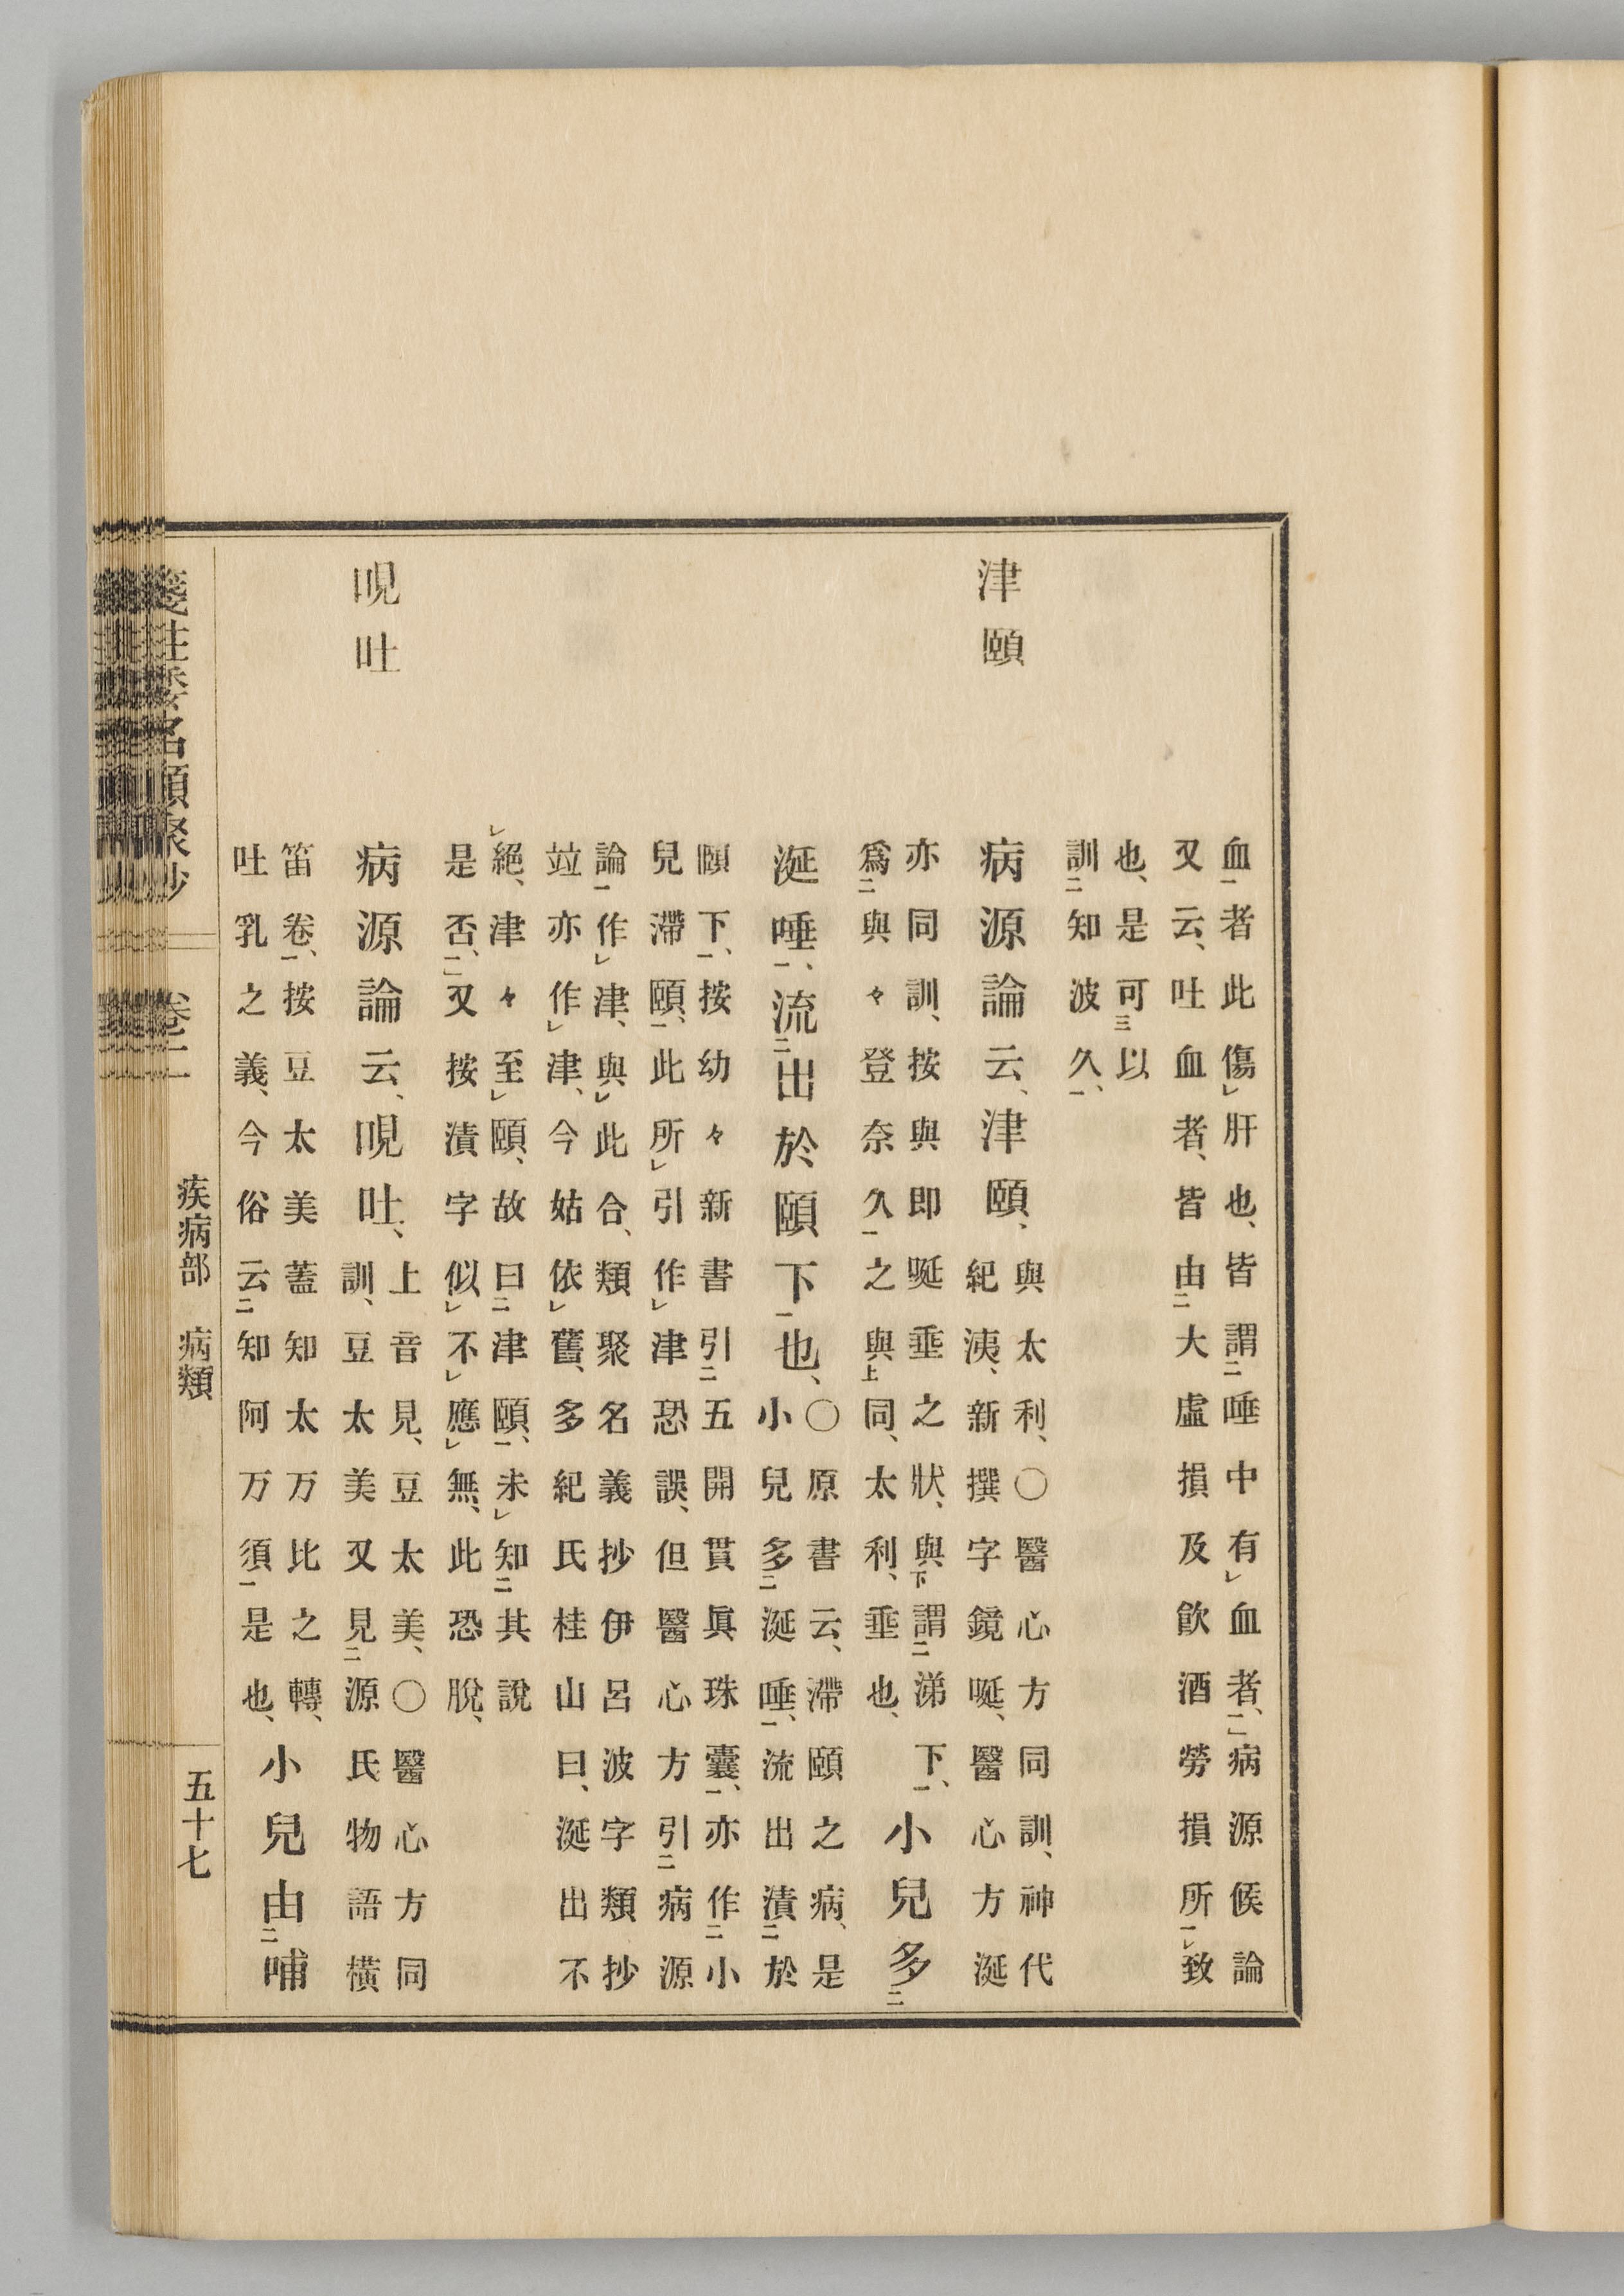 血一者此傷レ肝也、皆謂二唾中有レ血者、一病源候論
又云、吐血者、皆由二大虛損及飮酒勞損所一レ致
也、是可三以
訓二知波久一、
津頤
病源論云、津頤、
與太利、〇醫心方同訓、神代
紀洟、新撰字鏡唌、醫心方涎
亦同訓、按與即唌垂之狀、與下謂二涕下一、
爲二與々登奈久一之與上同、太利、垂也、
小兒多二
涎唾一、流二出於頤下一也、
〇原書云、滯頤之病、是
小兒多二涎唾一、流出漬二於
頤下一、按幼々新書引二五開貫眞珠囊一、亦作二小
兒滯頤一、此所レ引作レ津恐誤、但醫心方引二病源
論一作レ津、與レ此合、類聚名義抄伊呂波字類抄
竝亦作レ津、今姑依レ舊、多紀氏桂山曰、涎出不
レ絕、津々至レ頤、故曰二津頤一、未レ知二其說
是否、一又按漬字似レ不レ應レ無、此恐脫、
哯吐
病源論云、哯吐、
上音見、豆太美、〇醫心方同
訓、豆太美又見二源氏物語橫
笛卷一、按豆太美蓋知太万比之轉、
吐乳之義、今俗云二知阿万須一是也、
小兒由二哺
箋注倭名類聚抄 卷二 疾病部 病類 五十七